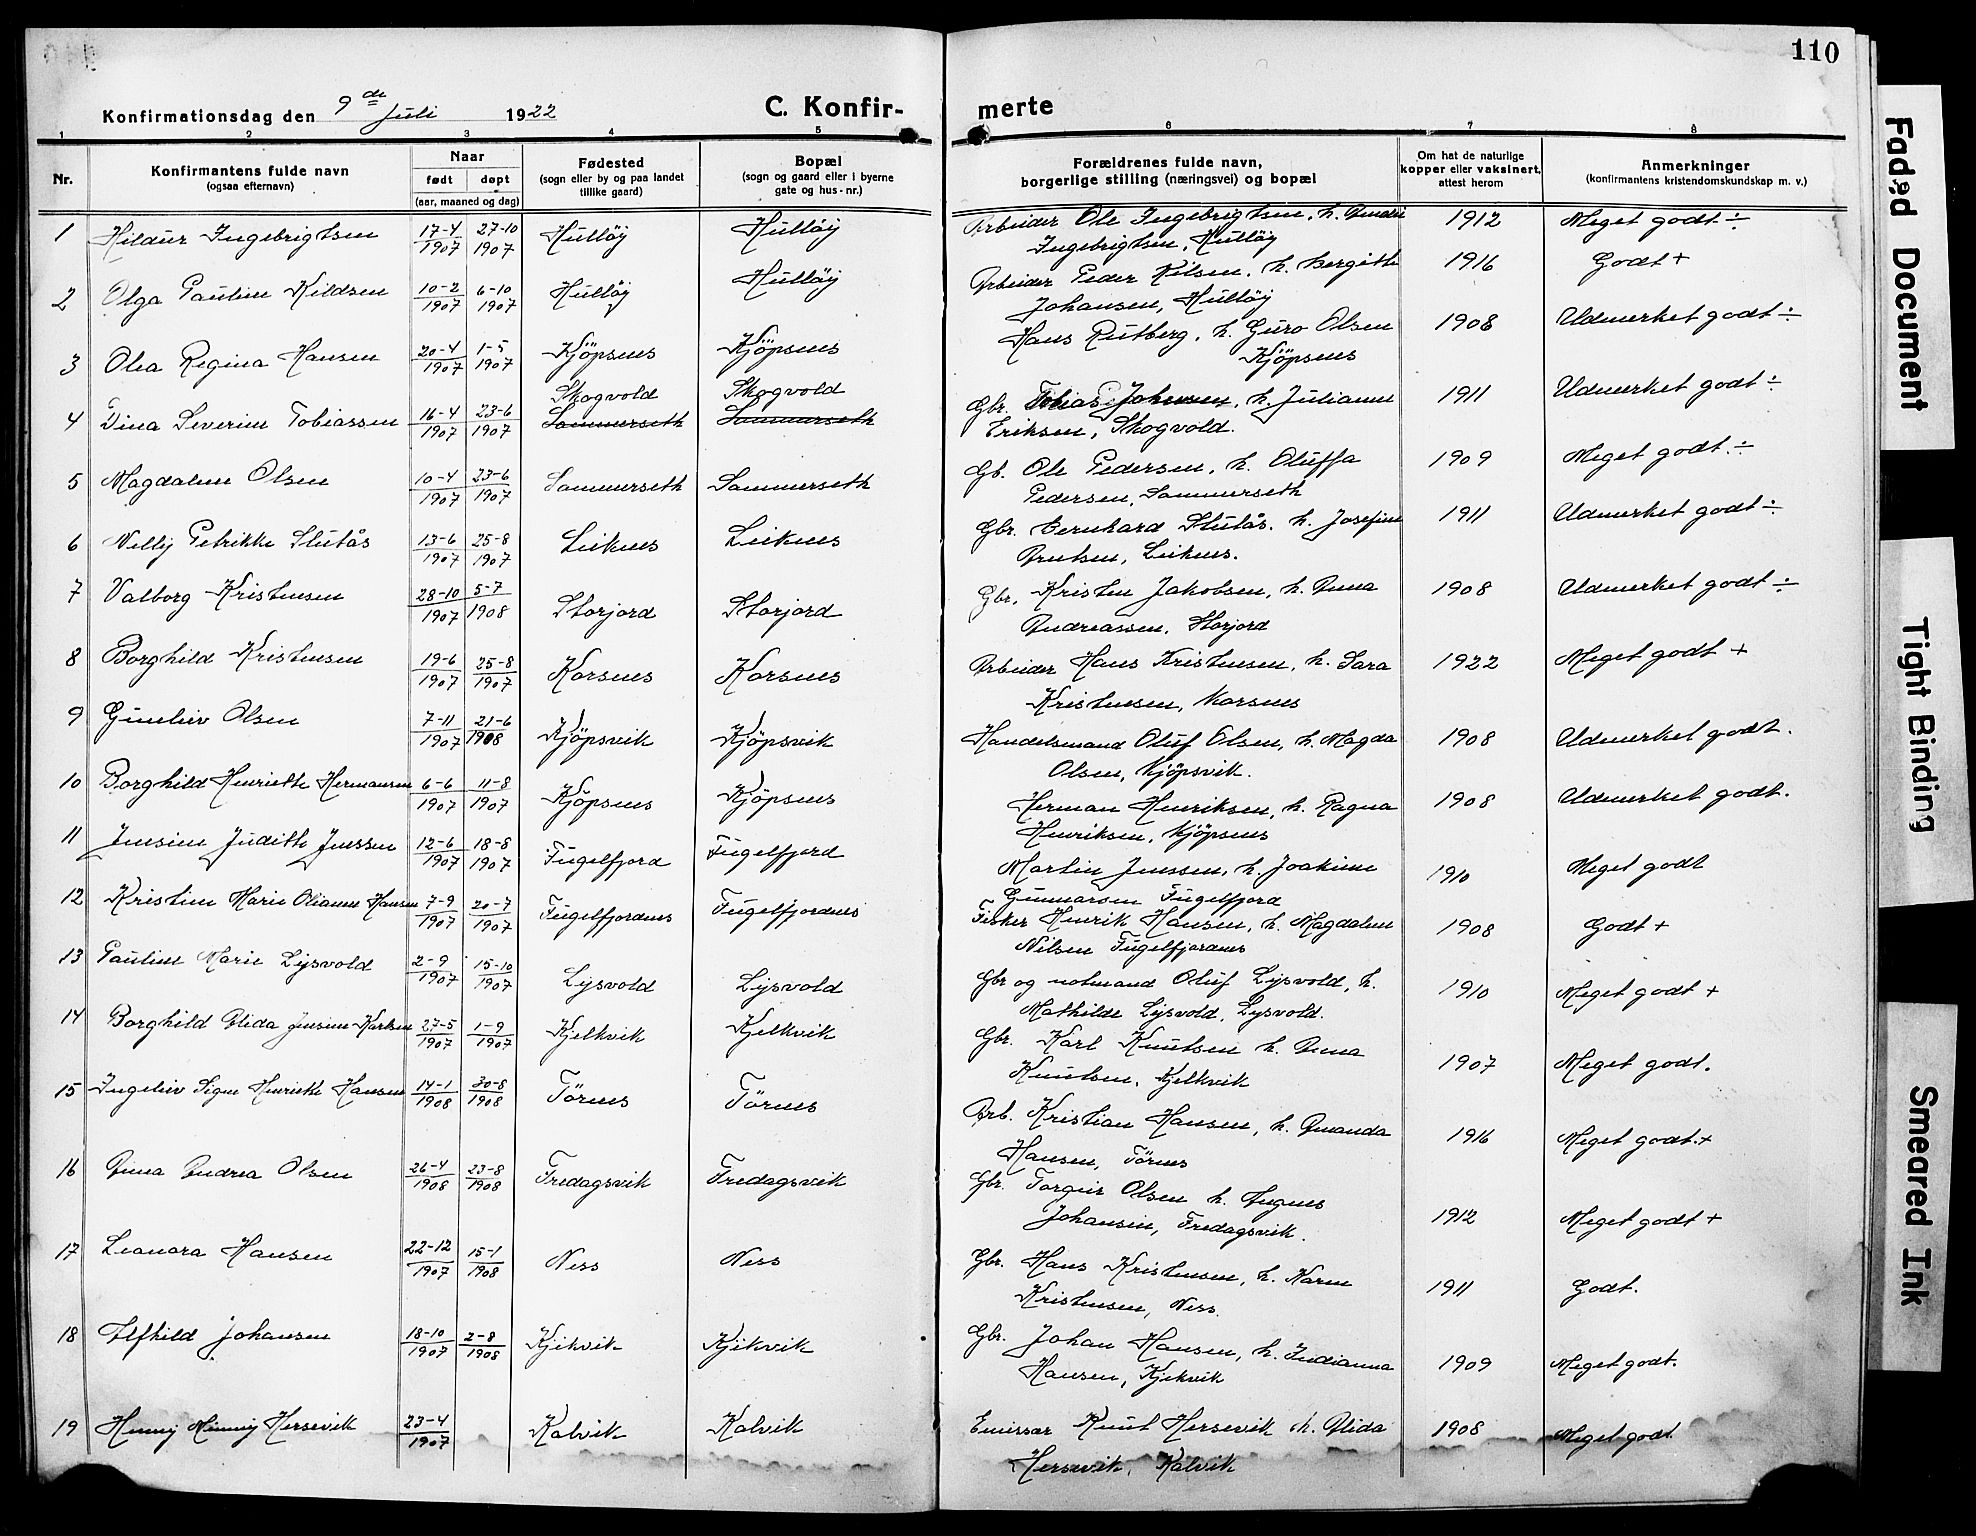 110
Konfirmationsdag den 9de Juli 1922
C. Konfirmerte
1 2 3 4 5 6 7 8
Nr.
Konfirmantens fulde navn
(ogsaa efternavn)
Naar
født døpt
(aar, maaned og dag)
Fødested
(sogn eller by og paa landet
tillike gaard)
Bopæl
(sogn og gaard eller i byerne
gate og hus-nr.)
Forældrenes fulde navn,
borgerlige stilling (næringsvei) og bopæl
Om hat de naturlige
kopper eller vaksinert,
attest herom
Anmerkninger
(konfirmantens kristendomskundskap m. v.)
1 Hildur Ingebrigtsen 17-4 1907 27-10 1907 Hulløy Hulløy Arbeider Ole Ingebrigtsen, h. Amari 1912 Meget godt ÷
Ingebrigtsen, Hulløy
2 Olga Pauline Nildsen 10-2 1907 6-10 1907 Hulløy Hulløy Arbeider Peder Nilsen, h. Bergithe 1916 Godt +
Johansen, Hulløy
3 Olea Regina Hansen 20-4 1907 1-5 1907 Kjöpsnes Kjöpsnes Hans Rutberg, h. Guro Olsen 1908 Udmerket godt ÷
Kjöpsnes
Skogvold Skogvold
4 Dina Severine Tobiassen 16-4 1907 23-6 1907 Sommerseth Sommerseth Gbr. Tobias Johansen, h. Julianne 1911 Udmerket godt ÷
Eriksen, Skogvold.
5 Magdalene Olsen 10-4 1907 23-6 1907 Sommerseth Sommerseth Gb. Ole Pedersen, h. Oluffa 1909 Meget godt ÷
Pedersen, Sommerseth
6 Nelly Petrikke Slutås 13-6 1907 25-8 1907 Leiknes Leiknes Gbr. Bernhard Slutås. h. Josefine 1911 Udmerket godt ÷
Arntsen, Leiknes.
7 Valborg Kristensen 28-10 1907 5-7 1908 Storjord Storjord Gbr. Kristen Jakobsen, h. Anna 1908 Udmerket godt ÷
Andreassen, Storjord
8 Borghild Kristensen 19-6 1907 25-8 1907 Korsnes Korsnes Arbeider Hans Kristensen, h. Sara 1922 Meget godt +
Kristensen, Korsnes
9 Gunliev Olsen 7-11 1907 21-6 1908 Kjöpsvik Kjöpsvik Handelsmand Oluf Olsen, h. Magda 1908 Udmerket godt.
Olsen, Kjöpsvik.
10 Borghild Henriette Hermansen 6-6 1907 11-8 1907 Kjöpsnes Kjöpsnes Herman Henriksen, h. Ragna 1908 Udmerket godt.
Henriksen, Kjöpsnes
11 Jensine Judith Jenssen 12-6 1907 18-8 1907 Fugelfjord Fugelfjord Martin Jenssen, h. Joakime 1910 Meget godt
Gunnarsen Fugelfjord
12 Kristine Marie Olianne Hansen 7-9 1907 20-7 1907 Fugelfjordnes Fugelfjordnes Fisker Henrik Hansen, h. Magdalene 1908 Godt +
Nilsen Fugelfjordnes
13 Pauline Marie Lysvold 2-9 1907 15-10 1907 Lysvold Lysvold Gbr og notmand Oluf Lysvold, h. 1910 Meget godt +
Mathilde Lysvold, Lysvold.
14 Borghild Alida Jensine Karlsen 27-5 1907 1-9 1907 Kjelkvik Kjelkvik Gbr. Karl Knutsen h. Anna 1907 Meget godt.
Knutsen, Kjelkvik
15 Ingeliev Signe Henriette Hansen 14-1 1908 30-8 1908 Törnes Törnes Arb. Kristian Hansen, h. Amanda 1916 Meget godt. +
Hansen, Törnes
16 Anna Andrea Olsen 26-4 1908 23-8 1908 Fredagsvik Fredagsvik Gbr. Torgeir Olsen h. Agnes 1912 Meget godt +
Johansen, Fredagsvik.
17 Leonora Hansen 22-12 1907 15-1 1908 Ness Ness Gbr. Hans Kristensen, h. Karen 1911 Godt.
Kristensen, Ness.
18 Alfhild Johansen 18-10 1907 2-8 1908 Kjikvik Kjikvik Gbr. Johan Hansen, h. Indianna 1909 Meget godt.
Hansen, Kjekvik
19 Henny Minny Hersevik 23-4 1907 Kalvik Kalvik Emissær Knut Hersevik h. Alida 1908 Meget godt
Hersevik, Kalvik
Faded Document
Tight Binding
Smeared Ink